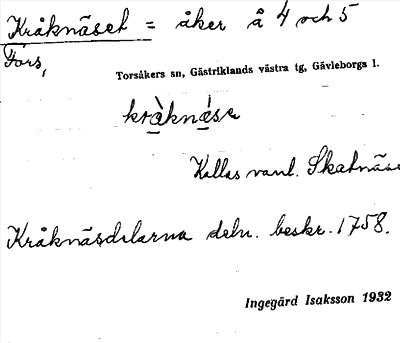 Kråknäset = åker å 4 och 5
Fors,
Torsåkers sn, Gästriklands västra tg, Gävleborgs l.
kråknäse
Kallas vanl. Skatnäs
Kråknäsdelarna deln. beskr. 1758.
Ingegärd Isaksson 1932